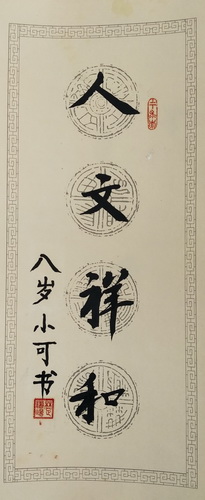 人文祥和
八岁小可书